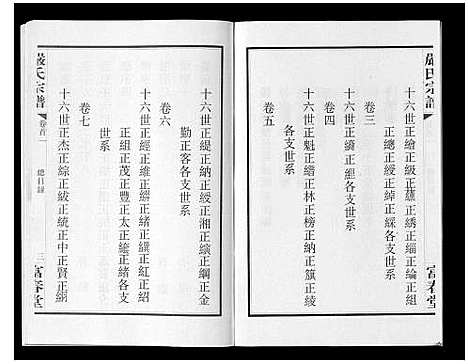 嚴氏宗譜
十六世正繪正級正蘊正綉正緇正綸正組
正總正綬正綽正綵各支世系
卷三
十六世正續正經各支世系
卷四
十六世正魁正縉正林正榜正納正旗正綾
各支世系
卷五
富春堂
十六世正緹正納正綬正縯正綱正金
勤正客各支世系
卷六
十六世正經正維正緇正緒正纁正紅正紹
正組正茂正豐正太正繞正緒各支
世系
卷七
十六世正杰正綜正紱正統正中正賢正絅
嚴氏宗譜
卷首二
總目錄
三
富春堂